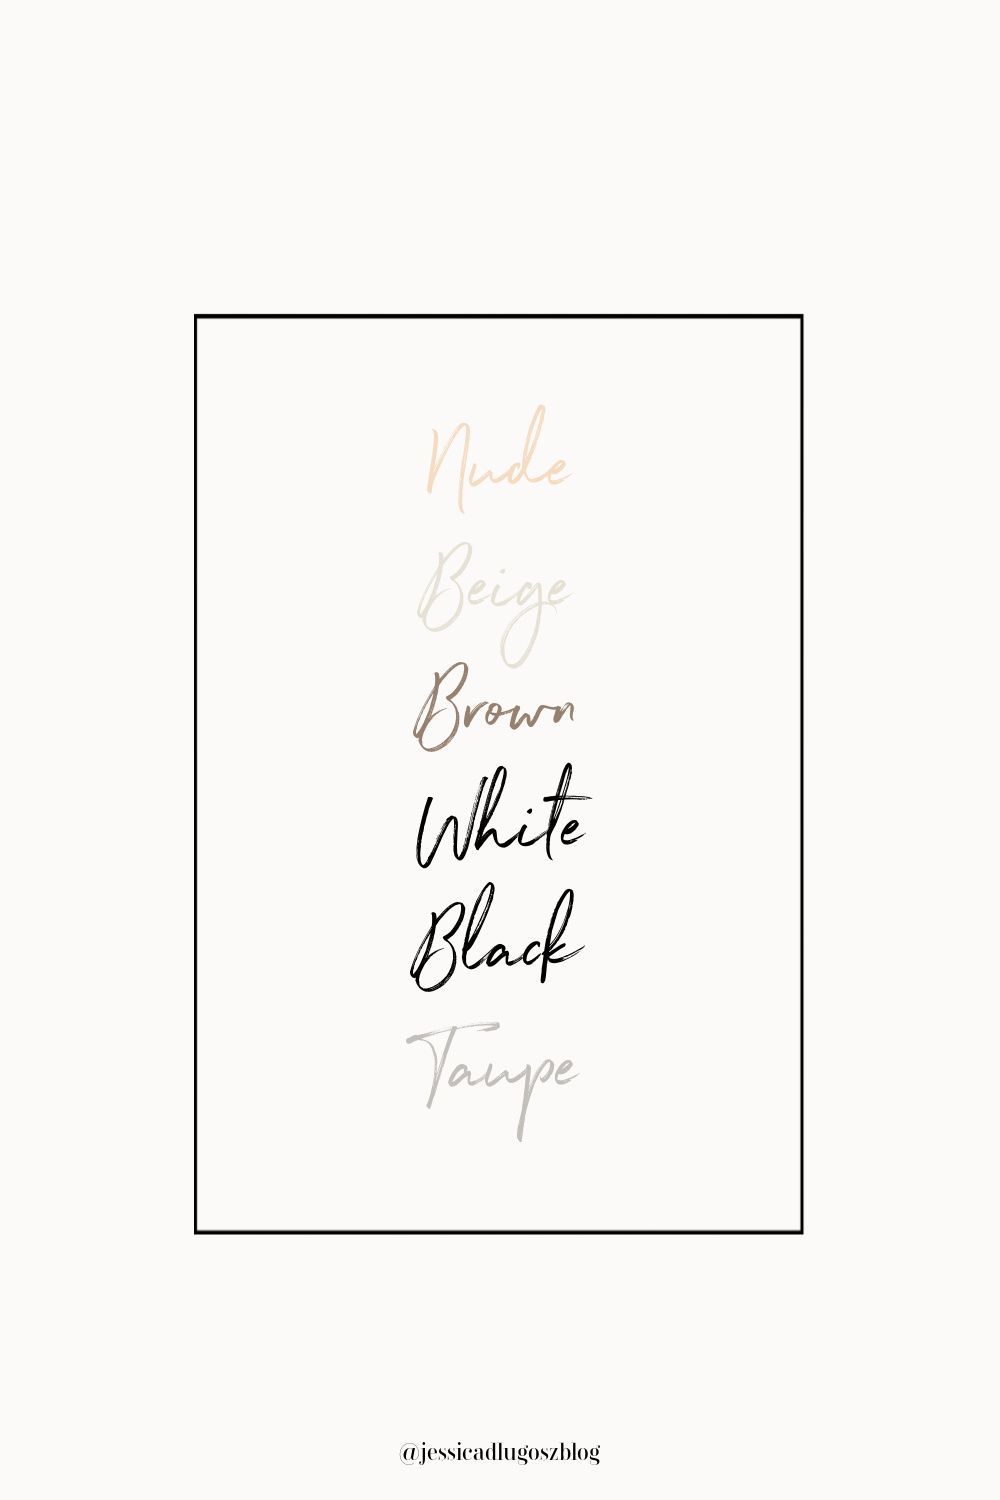 Nude
Beige
Brown
White
Black
Taupe
@jessicadlugoszblog